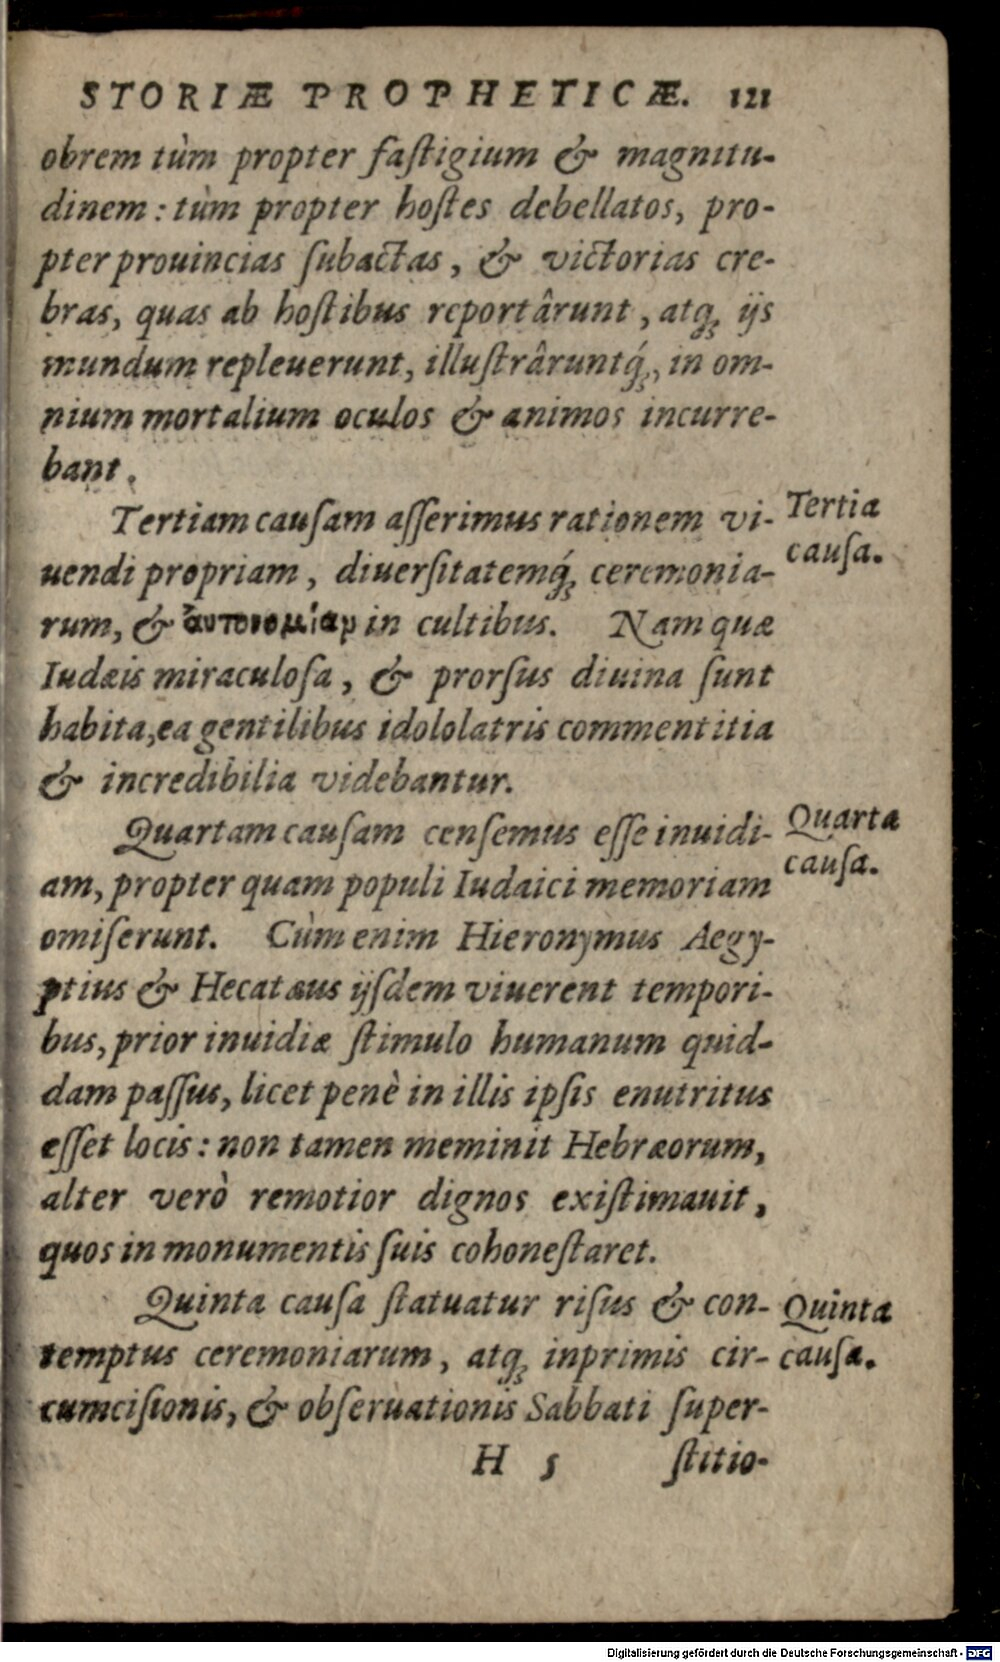 STORIÆ PROPHETICÆ. 121
obrem tùm propter faſtigium & magnitu-
dinem: tùm propter hoſtes debellatos, pro-
pter prouincias ſubactas, & victorias cre-
bras, quas ab hoſtibus reportârunt, atq́ꝫ ijs
mundum repleuerunt, illuſtrâruntq́ꝫ, in om-
nium mortalium oculos & animos incurre-
bant.
Tertiam cauſam aſſerimus rationem vi-
Tertia
cauſa.
uendi propriam, diuerſitatemq́ꝫ ceremonia-
rum, & ἀυτονομίαν in cultibus. Nam quæ
Iudæis miraculoſa, & prorſus diuina ſunt
habita, ea gentilibus idololatris commentitia
& incredibilia videbantur.
Quartam cauſam cenſemus eſſe inuidi-
Quarta
cauſa.
am, propter quam populi Iudaici memoriam
omiſerunt. Cùm enim Hieronymus Aegy-
ptius & Hecatæus ijſdem viuerent tempori-
bus, prior inuidiæ ſtimulo humanum quid-
dam paſſus, licet penè in illis ipſis enutritus
eſſet locis: non tamen meminit Hebræorum,
alter verò remotior dignos exiſtimauit,
quos in monumentis ſuis cohoneſtaret.
Quinta cauſa ſtatuatur riſus & con-
Quinta
cauſa.
temptus ceremoniarum, atqꝫ inprimis cir-
cumciſionis, & obſeruationis Sabbati ſuper-
H 5 ſtitio-
Digitalisierung gefördert durch die Deutsche Forschungsgemeinschaft - DFG